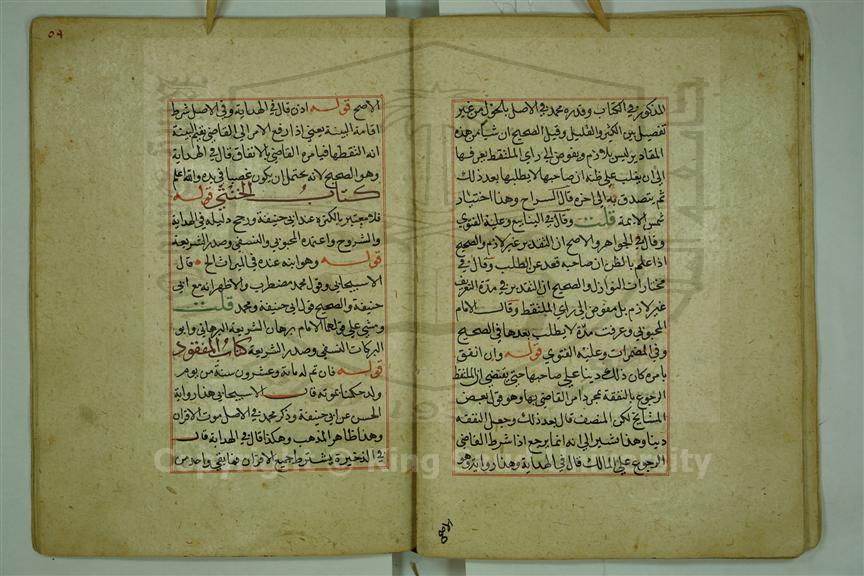 المذكور في الكتاب وقدره محمد في الاصل بالحول من غير
تفصيل بين الكثير والقليل وقيل الصحيح ان شيأ من هذه
المقادير ليس بلازم ويفوض الى راي الملتقط يعرفها
الى ان يغلب على ظنه ان صاحبها لا يطلبها بعد ذلك
ثم يتصدق به الى اخره قال السراج وهذا اختيار
شمس الايمة قلت وقال في الينابيع وعليه الفتوي
وقال في الجواهر والاصح ان التقدير غير لازم والصحيح
اذا علم بالظن ان صاحبه قعد عن الطلب وقال في
مختارات النوازل والصحيح ان التقدير في مدة التعريف
غير لازم بل مفوض الى راي الملتقط وقال الامام
المحبوبي وعرفت مدة لا يطلب بعدها في الصحيح
وفي المضمرات وعليه الفتوي قوله وان انفق
بامره كان ذلك دينا على صاحبها حتى يقتضي ان للملتقط
الرجوع بالنفقة بمجرد امر القاضي بها وهو قول بعض
المشايخ لكن المصنف قال بعد ذلك وجعل النفقه
دينا وهذا اشير الى انه انما يرجع اذا شرط القاضي
الرجوع على المالك قال في الهداية وهذا رواية وهو
٥٦
الاصح قوله اذن قال في الهداية وفي الاصل شرط
اقامة البينة يعني اذا رفع الامر الى القاضي يقيم البينة
انه التقطها فيامره القاضي بالانفاق قال في الهداية
وهو الصحيح لانه يحتمل ان يكون غصبا في يده والله اعلم
كتاب الخنثي قوله
فلا معتبر بالكثرة عند ابي حنيفة ورجح دليله في الهداية
والشروح واعتمده المحبوبي والنسفي وصدر الشريعة
قوله وهو ابنه عنده في الميراث الخ قال
الاسبيجابي وقول محمد مضطرب والاظهر انه مع ابي
حنيفة والصحيح قول ابي حنيفة ومحمد قلت
ومشى على قولهما الامام برهان الشريعة البرهاني وابو
البركات النسفي وصدر الشريعة كتاب المفقود
قوله فان تم له مائة وعشرون سنة من يوم
ولد حكمنا بموته قال الاسبيجابي هذا رواية
الحسن عن ابي حنيفة وذكر محمد في الاصل موت الاقران
وهذا ظاهر المذهب وهكذا قال في الهداية قال
في الذخيرة يشترط جميع الاقران فما بقي واحد من
Copyright © King Saud University